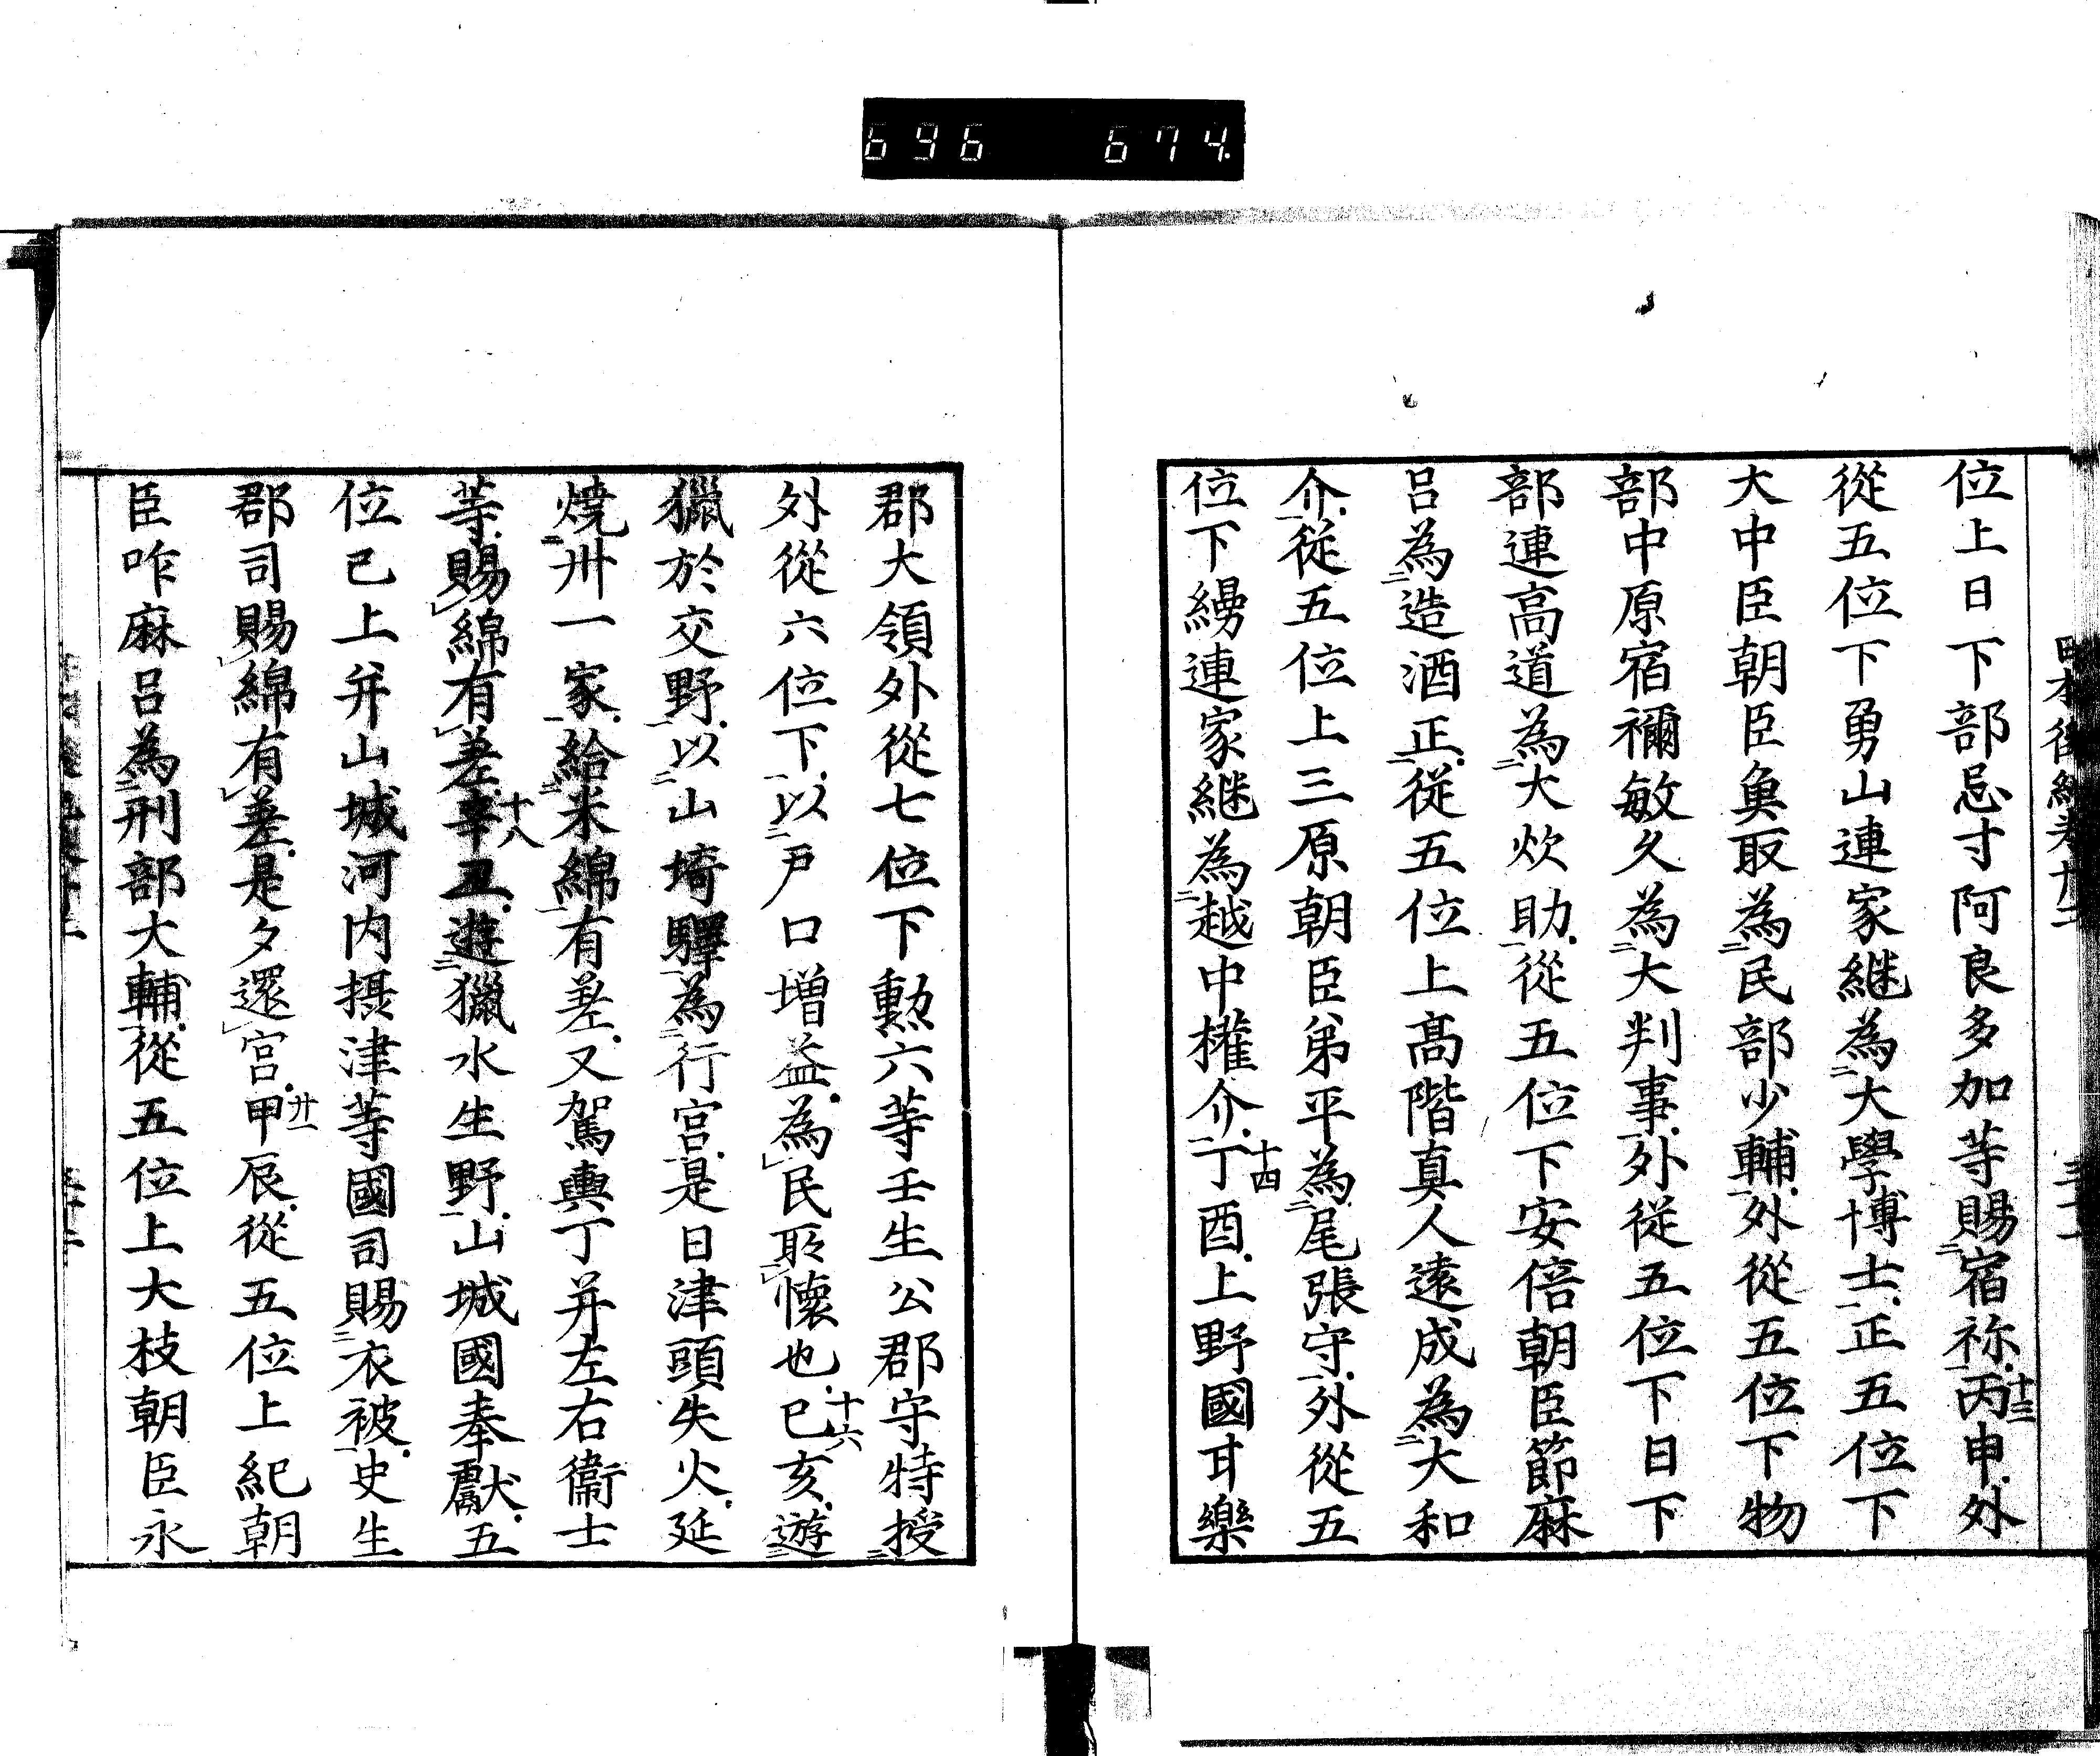 696 674
位上日下部忌寸阿良多加等賜宿祢丙申外
十三
從五位下勇山連家継為大學博士正五位下
大中臣朝臣魚取為民部少輔外從五位下物
部中原宿禰敏久為大判事外從五位下日下
部連高道為大炊助從五位下安倍朝臣節麻
呂為造酒正從五位上高階真人遠成為大和
介從五位上三原朝臣弟平為尾張守外從五
位下縵連家継為越中權介丁酉上野國甘樂
十四
郡大領外從七位下勲六等壬生公郡守特授
外從六位下以戸口増益為民所懷也已亥遊
十六
獵於交野以山埼驛為行宮是日津頭失火延
燒卅一家給米綿有差又駕輿丁并左右衞士
等賜綿有差辛丑遊獵水生野山城國奉獻五
十八
位已上并山城河内摂津等國司賜衣被史生
郡司賜綿有差是夕還宮甲辰從五位上紀朝
廿一
臣咋麻呂為刑部大輔從五位上大枝朝臣永